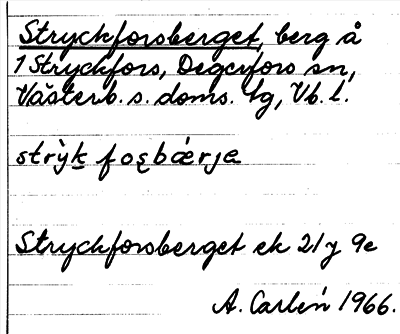 Stryckforsberget, berg å
1 Stryckfors, Degerfors sn,
Västerb. s. doms. tg, Vb. l.
strỳk foꞩbǽrja
Stryckforsberget ek 21y 9e
A. Carlén 1966.